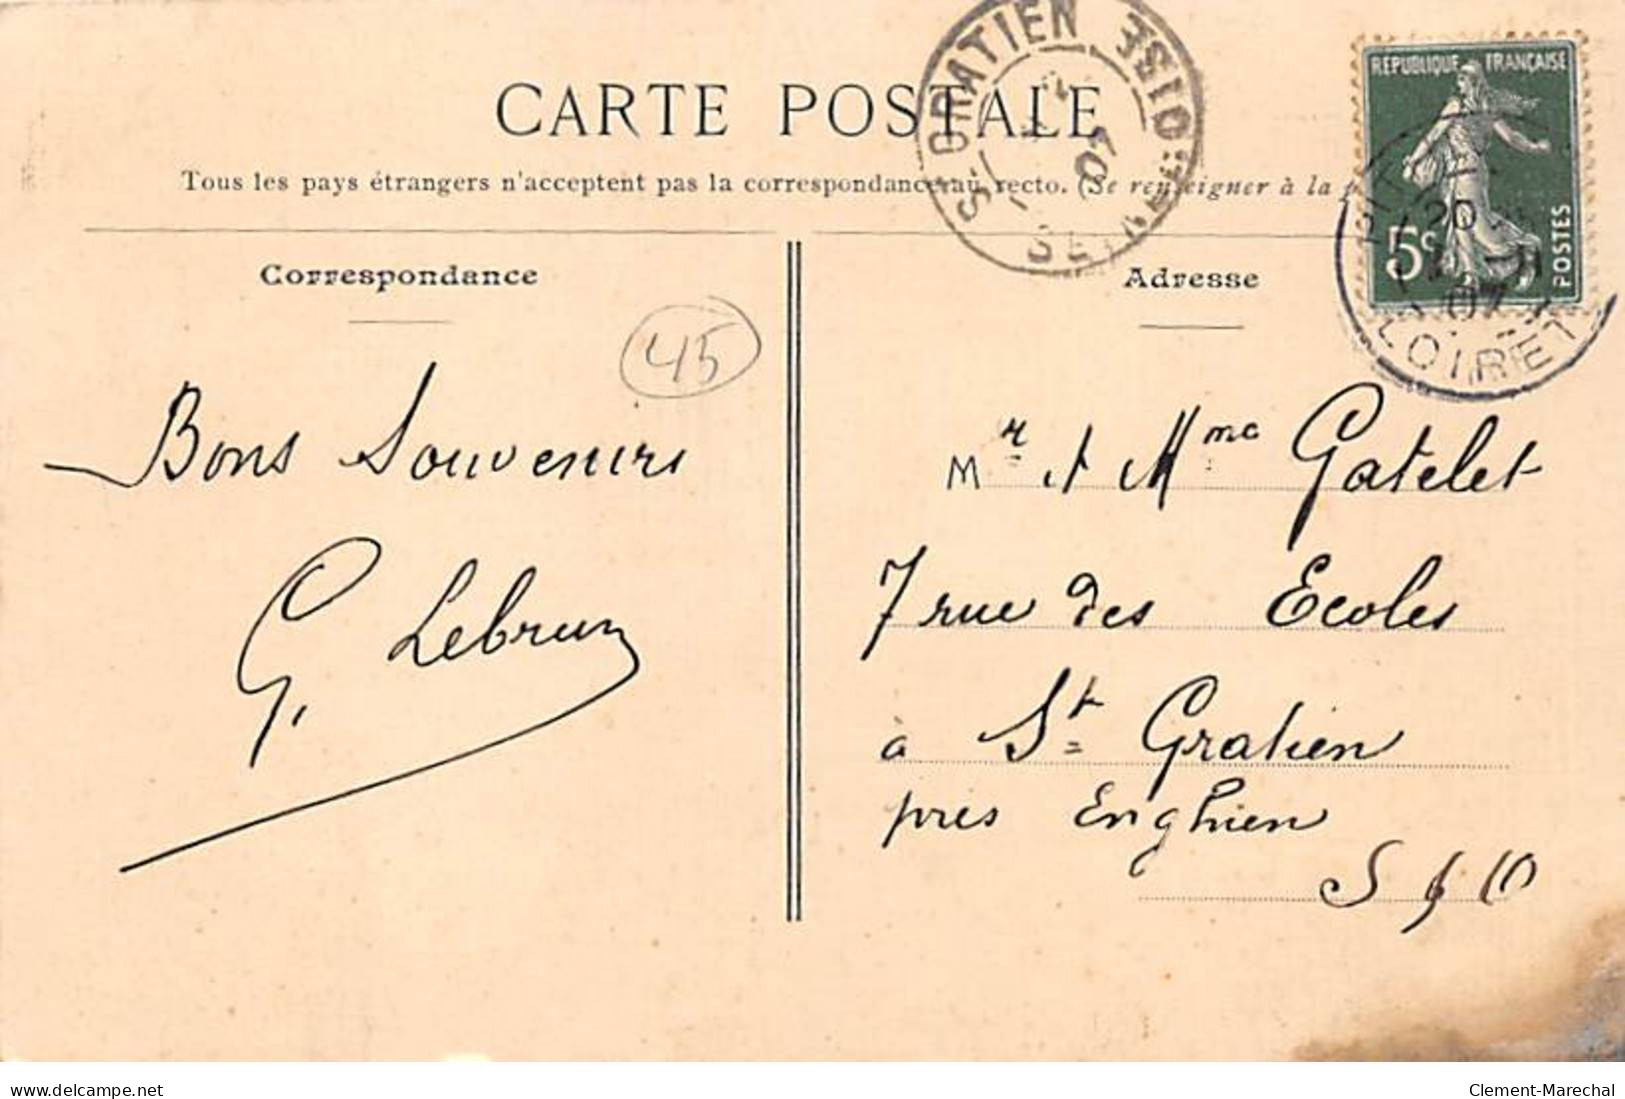 CARTE POSTALE
Tous les pays étrangers n'acceptent pas la correspondance au recto. (Se renseigner à la
Correspondance
45
Bons Souvenirs
G. Lebrun
Adresse
Mr et Mme Gatelet
7 rue des Ecoles
à St Gratien
près Enghien
S & O
ST GRATIEN
SEINE-ET-OISE
07
REPUBLIQUE FRANÇAISE
5c
POSTES
20
11
07
LOIRET
www.delcampe.net
Clement-Marechal